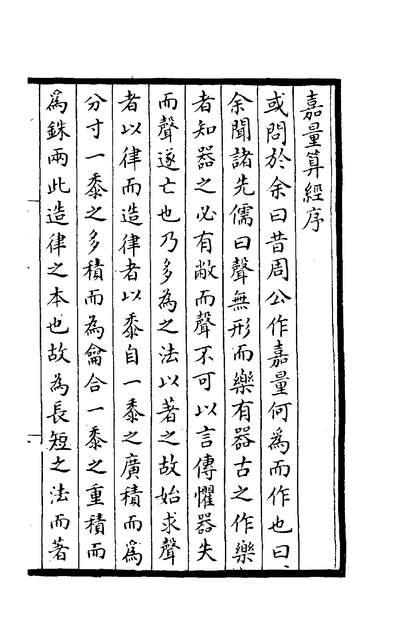 嘉量算經序
或問於余曰昔周公作嘉量何爲而作也曰
余聞諸先儒曰聲無形而樂有器古之作樂
者知器之必有敝而聲不可以言傳懼器失
而聲遂亡也乃多為之法以著之故始求聲
者以律而造律者以黍自一黍之廣積而爲
分寸一黍之多積而為龠合一黍之重積而
爲銖兩此造律之本也故為長短之法而著